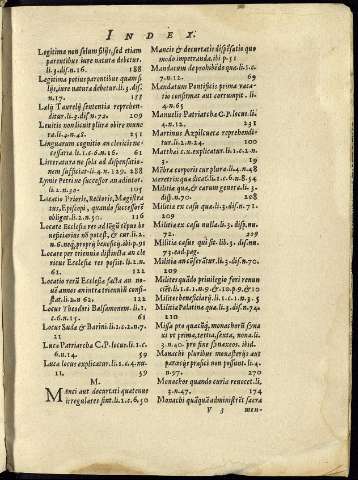 INDEX.
Legitima non solum filijs, sed etiam
parentibus iure natura debetur.
li.3.dis.n.16. 188
Legitima potius parentibus quam fi
lijs, iure natura debetur. li.3. dis.
n.17. 188
Lælij Taurelij sententia reprehen
ditur. li.3. dis. n.72. 209
Leuitis non licuit plura obire mune
ra. li.4.n.48. 251
Linguarum cognitio an clericis ne-
cessaria. li.1.c.6.n.16. 61
Litteratura ne sola ad dispensatio-
nem sufficiat. li.4.n. 129. 288
Lymie Petri ne successor an adintor.
li.2.n.30. 105
Locatio Prioris, Rectoris, Magistra
tus, Episcopi, quando successorē
obliget. li.2.n.50. 116
Locare Ecclesia res ad longū tēpus be
neficiarius nō potest, & cur. li.2.
n.6. neq; proprij beneficij. ibi. p. 91
Locare per triennia distincta an cle
ricus Ecclesia res possit. li.2.n.
60. 122
Locatio rerū Ecclesia facta an no-
uus annos ante initia triennij consi-
stat. li.2.n 62. 122
Locus Theodori Balsamonem. li.1.
c.6.n.15. 61
Locus Suda & Barini. li.1.c.2.n.7.
11
Luca Patriarcha C.P. locus. li.1.c.
6.n.14. 59
Luca locus explicatur. li.1.c.4.nu.
11. 39
M.
Manci aut decurtati quatenus
irregulares sint. li.1.c.6. 50
Mancis & decurtatis dispēsatio quo
modo impetranda. ibi p.51
Mandatum de prohibēdo qua. li.1.c.
7.n.12. 69
Mandatum Pontificis prima vaca-
tio consumat aut corrumpit. li.
4.n.65
Manuelis Patriarcha C.P. locus. li.
4.n.12. 231
Martinus Azpilcueta reprehendi-
tur. li.2.n.24. 100
Matthai c.n. explicatur. li.1.c.4.n.
3. 19
Mēdra corporis can plara. li.4.n.48
Meretrix qua dicat. li.1.c.6.n.8. 54
Militia qua, & earum genera. li.3.
dis.n.70. 208
Militia ex casu qua. li.3.dis.n.71.
209
Militia ex casu nulla. li.3. dis. nu.
72. 209
Militia casus qui sit. lib.3. dis. nu.
73. ead. pag.
Militia an cōferātur. li.3. dis. n.70.
209
Milites quādo priuilegio fori renun
ciēt. li.1.c.1.n.9. & 10.p.9. & 10
Milites beneficiarij. li.1.c.1.n.3. 5
Militia Palatina qua. li.3.dis.n.74
210
Missa pro qua alicuj, monachorū syna
xis vt prima, tertia, sexta, nona. li.
3.n.40. pro fine synaxeos. ibid.
Monachi pluribus monasterijs aut
parœcijs præfici non possunt. li.4.
n.97. 270
Monachos quando curia reuocet. li.
3.n.47. 174
Monachos quāquā administrēt sacra
V 3 men-